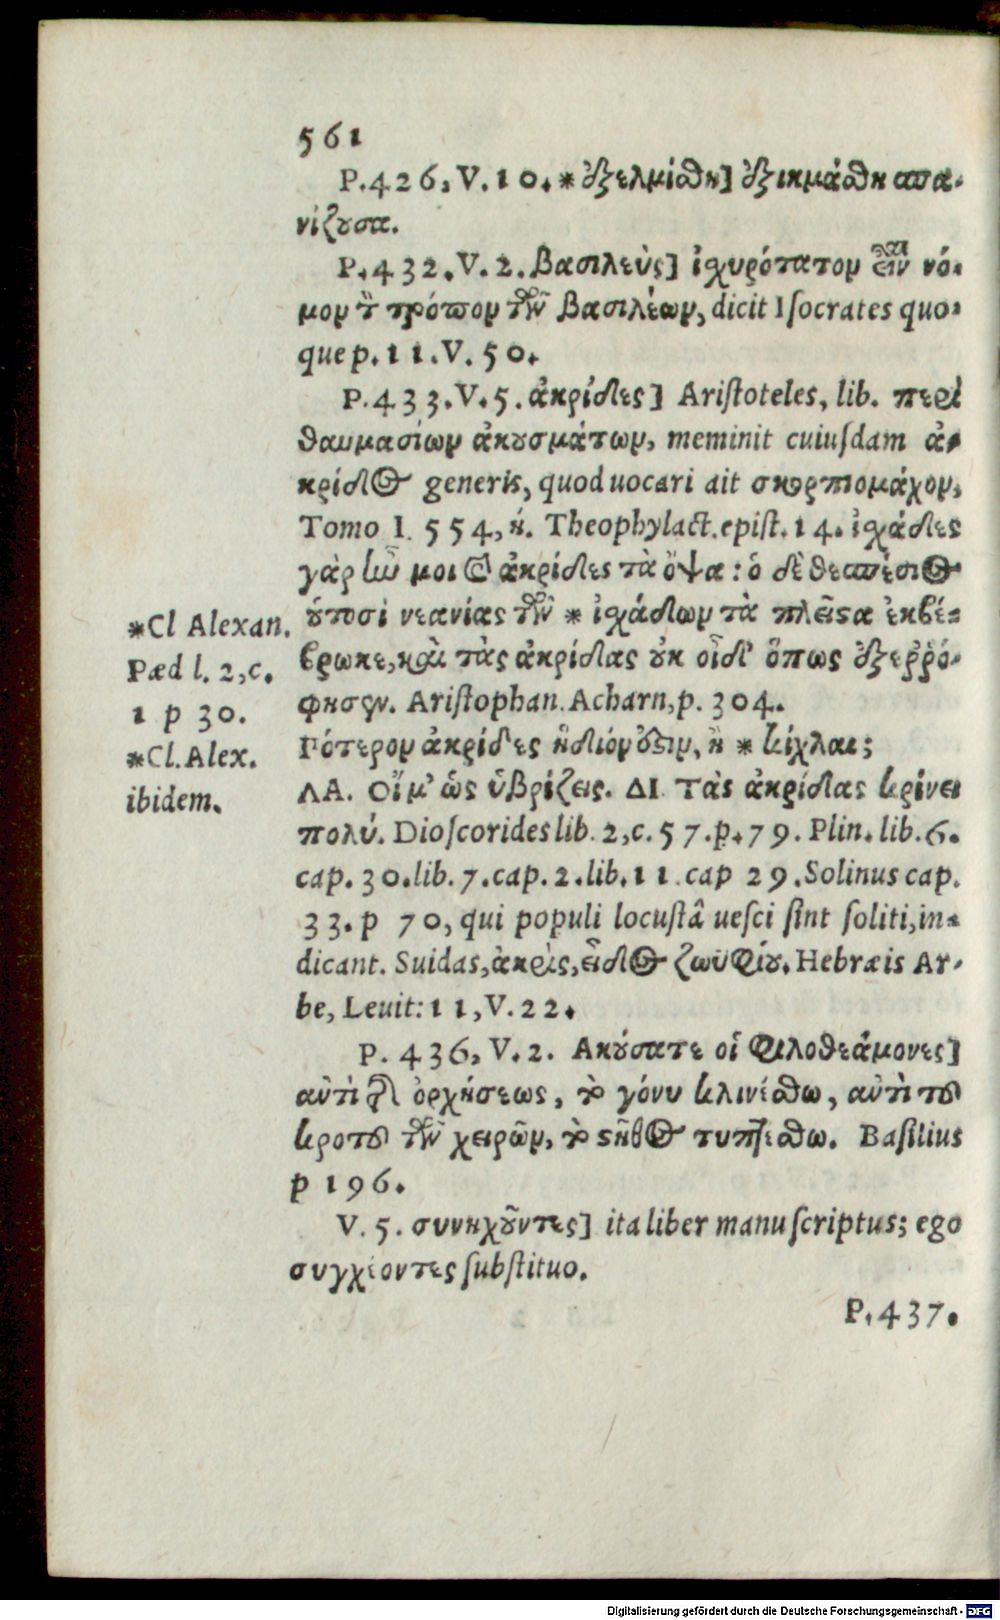 561
P.426, V.10. * ἐξελμίσθη] ἐξικμάσθη σπα-
νίζουσα.
P.432. V. 2. βασιλεὺς] ἰσχυρότατον εἶναι νό-
μον τὸν τρόπον τῶν βασιλέων, dicit Isocrates quo-
que p. 11. V. 50.
P.433. V. 5. ἀκρίδες] Aristoteles, lib. περὶ
θαυμασίων ἀκουσμάτων, meminit cuiusdam ἀ-
κρίδος generis, quod uocari ait σκορπιομάχον,
Tomo I. 554, η. Theophylact. epist. 14. ἰσχάδες
γὰρ ἦν μοι καὶ ἀκρίδες τὰ ὄψα: ὁ δὲ θεσπέσιος
οὑτοσὶ νεανίας τῶν * ἰσχάδων τὰ πλεῖστα ἐκβέ-
βρωκε, καὶ τὰς ἀκρίδας οὐκ οἶδ' ὅπως ἐξεῤῥό-
φησεν. Aristophan. Acharn, p. 304.
Πότερον ἀκρίδες ἥδιόν ἐστιν, ἢ * κίχλαι;
ΛΑ. Οἴμ' ὡς ὑβρίζεις. ΔΙ. Τὰς ἀκρίδας κρίνει
πολύ. Dioscorides lib. 2, c. 57. p. 79. Plin. lib. 6.
cap. 30. lib. 7. cap. 2. lib. 11. cap 29. Solinus cap.
33. p 70, qui populi locustâ uesci sint soliti, in-
dicant. Suidas, ἀκρὶς, εἶδος ζωϋφίου. Hebræis Ar-
be, Leuit: 11, V. 22.
P. 436, V. 2. Ακούσατε οἱ φιλοθεάμονες]
αὐτὶ τῆς ὀρχήσεως, τὸ γόνυ κλινέσθω, αὐτὶ τοῦ
κροτοῦ τῶν χειρῶν, τὸ στῆθος τυπτέσθω. Basilius
p 196.
V. 5. συνηχοῦντες] ita liber manuscriptus; ego
συγχέοντες substituo.
P. 437.
*Cl Alexan.
Pæd l. 2, c.
1 p 30.
*Cl. Alex.
ibidem.
Digitalisierung gefördert durch die Deutsche Forschungsgemeinschaft - DFG